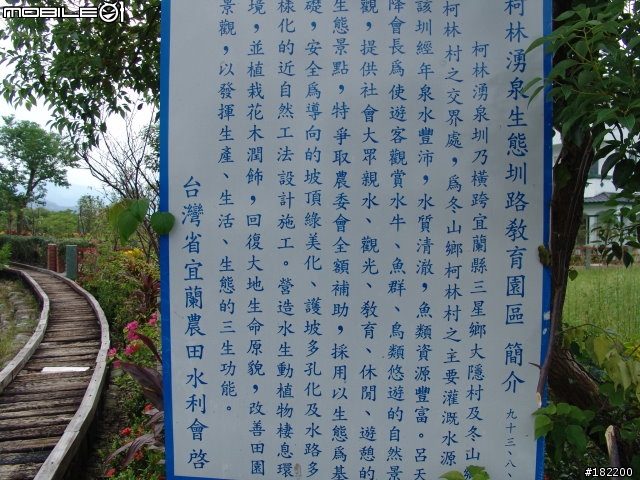 柯林湧泉生態圳路教育園區 簡介 九十三、八、
柯林湧泉圳乃橫跨宜蘭縣三星鄉大隱村及冬山
柯林村之交界處，為冬山鄉柯林村之主要灌溉水源
該圳經年泉水豐沛，水質清澈，魚類資源豐富。呂天
降會長為使遊客觀賞水牛、魚群、鳥類悠遊的自然景
觀，提供社會大眾親水、觀光、教育、休閒、遊憩的
生態景點，特爭取農委會全額補助，採用以生態為基
礎，安全為導向的坡頂綠美化、護坡多孔化及水路多
樣化的近自然工法設計施工。營造水生動植物棲息環
境，並植栽花木潤飾，回復大地生命原貌，改善田園
景觀，以發揮生產、生活、生態的三生功能。
台灣省宜蘭農田水利會啓
mobile01
#182200